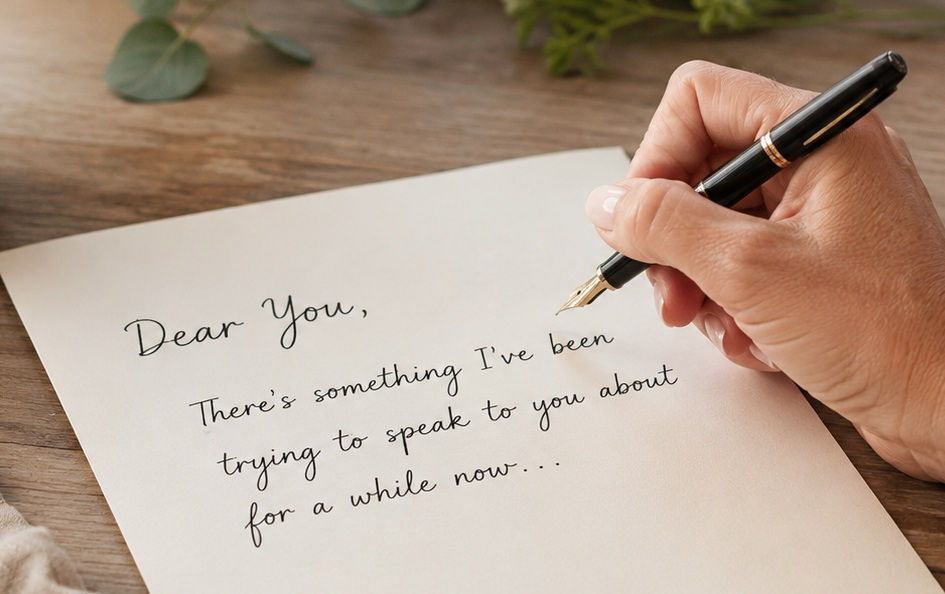 Dear You,
There's something I've been
trying to speak to you about
for a while now...